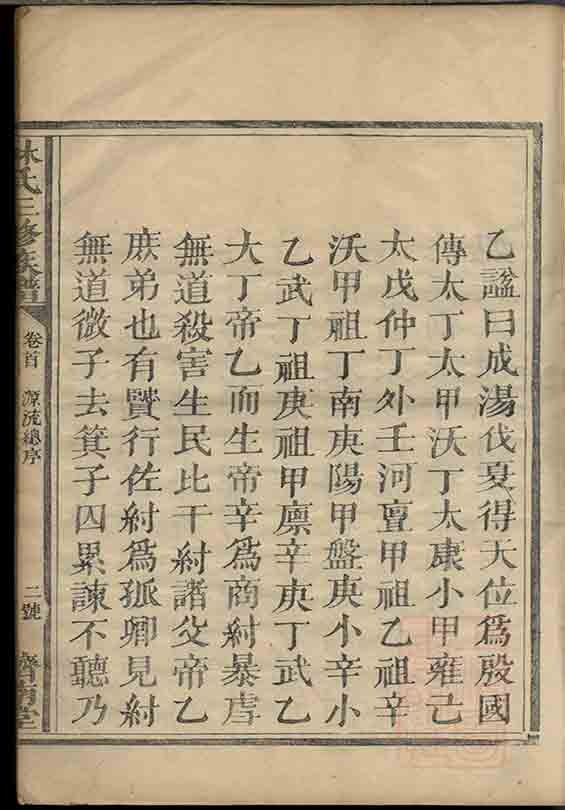 乙諡曰成湯伐夏得天位爲殷國
傳太丁太甲沃丁太康小甲雍己
太戊仲丁外壬河亶甲祖乙祖辛
沃甲祖丁南庚陽甲盤庚小辛小
乙武丁祖庚祖甲廩辛庚丁武乙
大丁帝乙而生帝辛爲商紂暴虐
無道殺害生民比干紂諸父帝乙
庶弟也有賢行佐紂爲孤卿見紂
無道微子去箕子囚累諫不聽乃
林氏三修族譜
卷首 源流總序
二號
堂